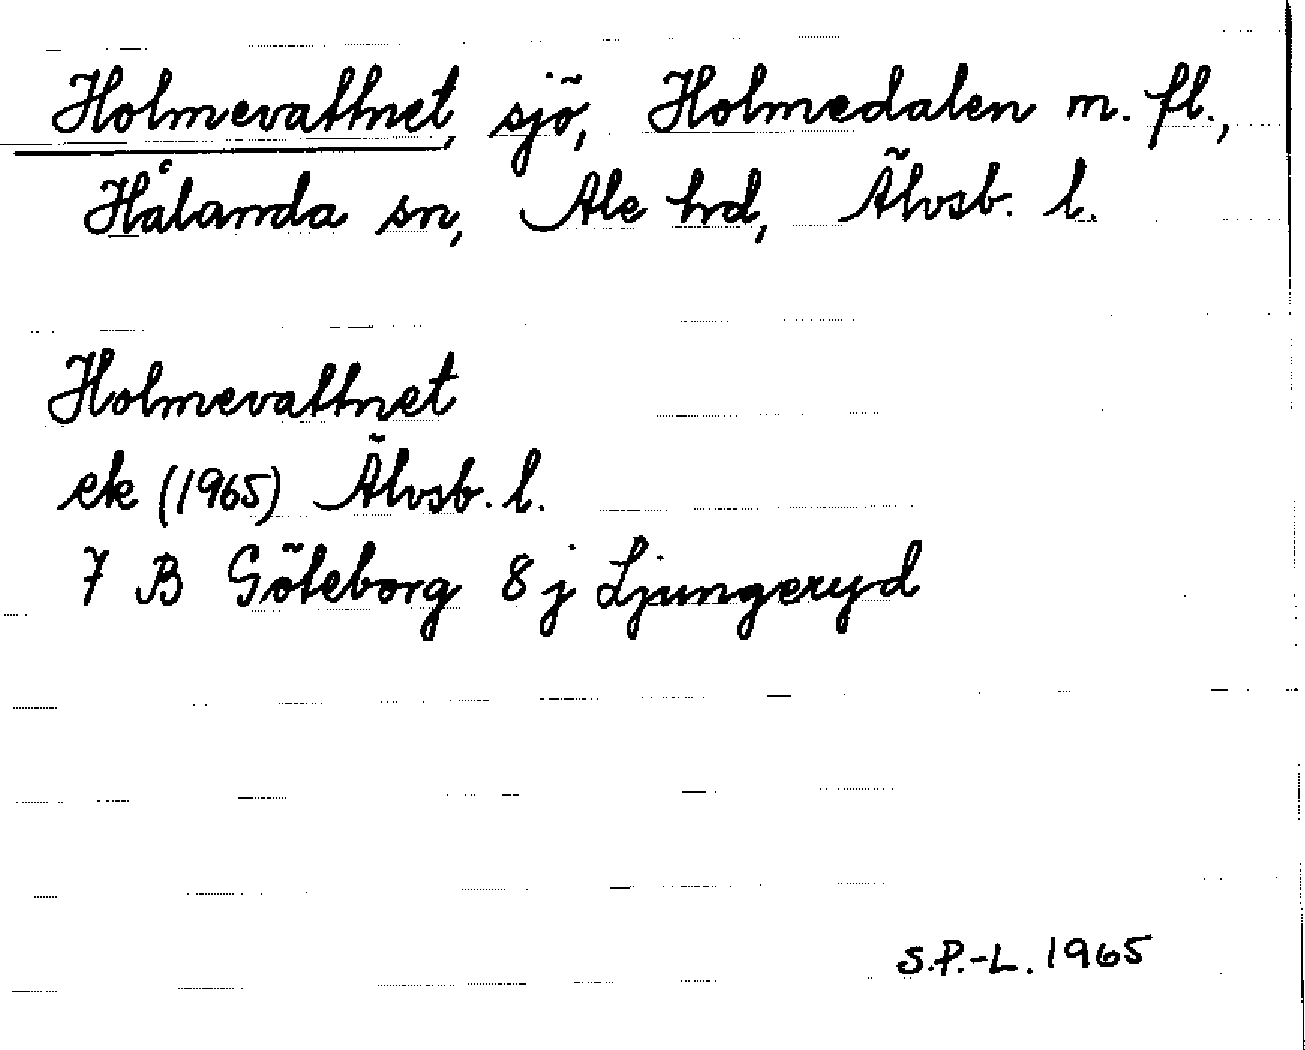 Holmevattnet, sjö, Holmedalen m. fl.,
Hålanda sn, Ale hd, Älvsb. l.
Holmevattnet
ek (1965) Älvsb. l.
7 B Göteborg 8 j Ljungeryd
S.P.-L. 1965